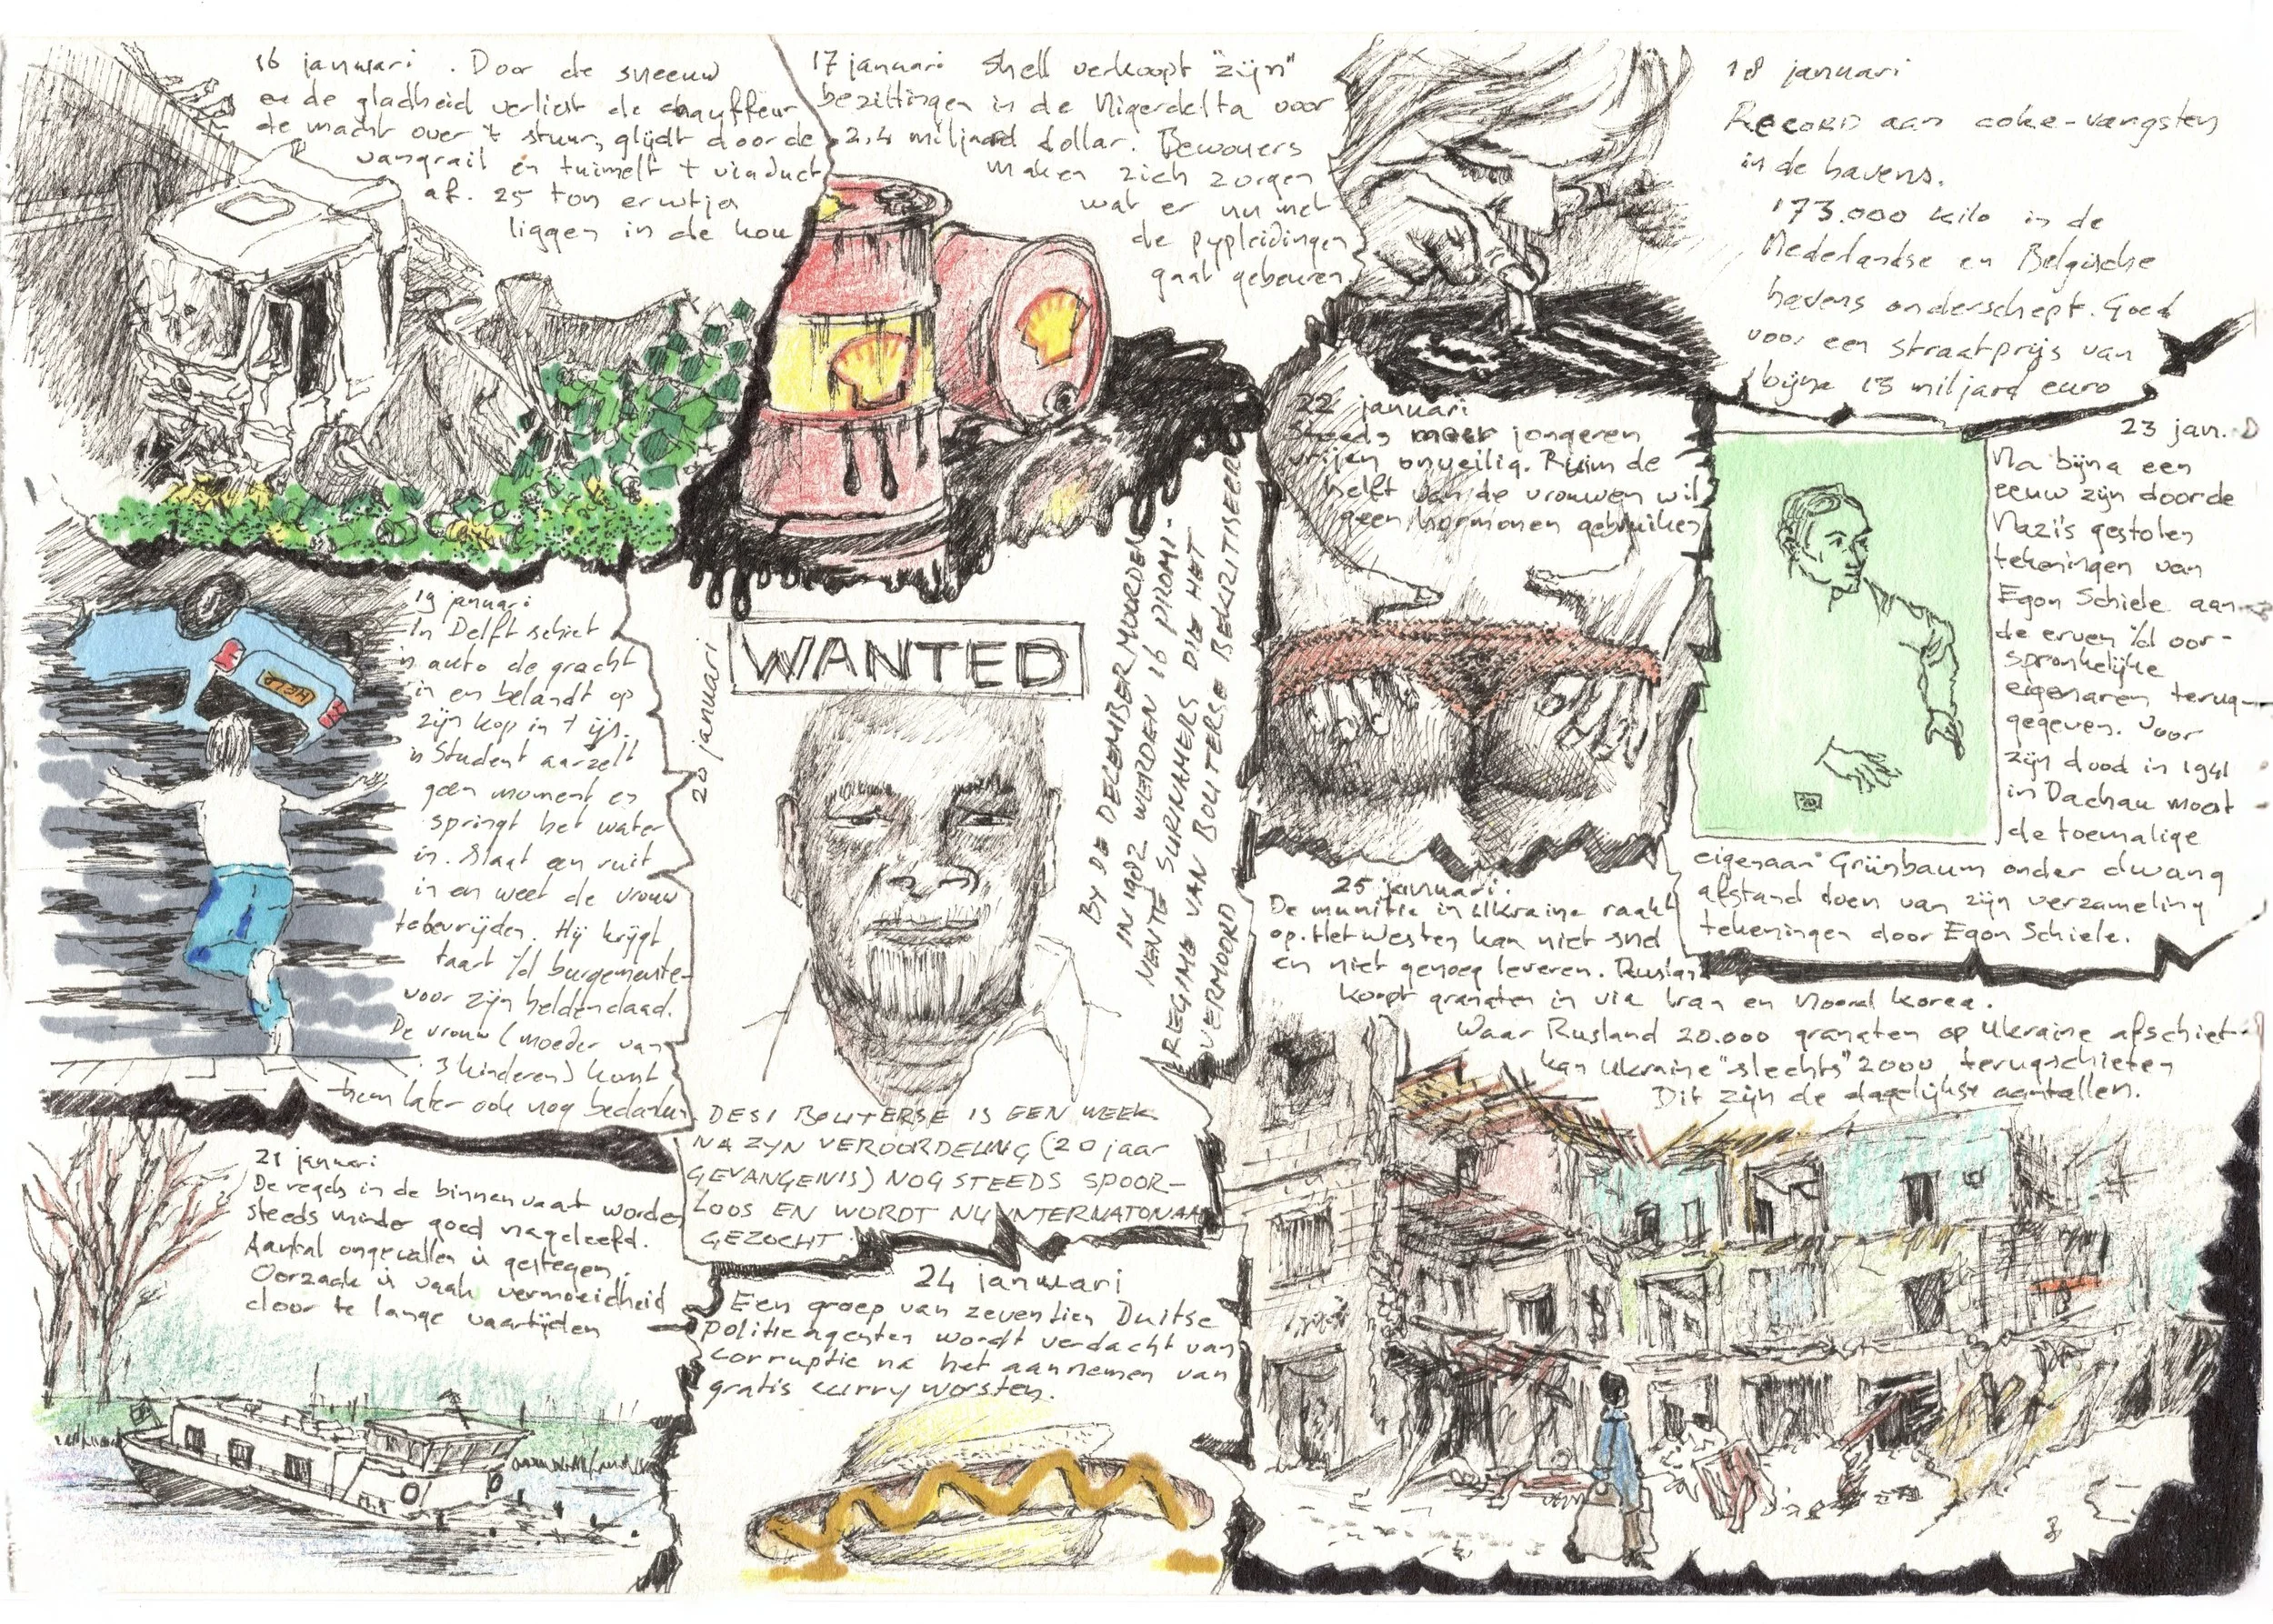 16 januari. Door de sneeuw
en de gladheid verliest de chauffeur
de macht over 't stuur, glijdt door de
vangrail en tuimelt 't viaduct
af. 25 ton erwtjes
liggen in de kou
17 januari Shell verkoopt "zijn"
bezittingen in de Nigerdelta voor
2,4 miljard dollar. Bewoners
maken zich zorgen
wat er nu met
de pypleidingen
gaat gebeuren
18 januari
RECORD aan coke-vangsten
in de havens.
173.000 kilo in de
Nederlandse en Belgische
havens onderschept. Goed
voor een straatprijs van
bijna 13 miljard euro
19 januari
In Delft schiet
'n auto de gracht
in en belandt op
zijn kop in 't ijs.
'n Student aarzelt
geen moment en
springt het water
in. Slaat een ruit
in en weet de vrouw
te bevrijden. Hij krijgt
taart v/d burgemeester
voor zijn heldendaad.
De vrouw (moeder van
3 kinderen) komt
hem later ook nog bedanken
HELP
20 januari
WANTED
BY DE DECEMBERMOORDEN
IN 1982 WERDEN 16 PROMI-
NENTE SURINAMERS DIE HET
REGIME VAN BOUTERSE BEKRITISEERDEN
VERMOORD
DESI BOUTERSE IS EEN WEEK
NA ZYN VEROORDELING (20 jaar
GEVANGENIS) NOG STEEDS SPOOR-
LOOS EN WORDT NU INTERNATONAAL
GEZOCHT.
21 januari
De regels in de binnenvaart worden
steeds minder goed nageleefd.
Aantal ongevallen is gestegen.
Oorzaak is vaak vermoeidheid
door te lange vaartijden
22 januari
Steeds meer jongeren
vrijen onveilig. Ruim de
helft van de vrouwen wil
geen hormonen gebruiken
23 jan.
Na bijna een
eeuw zijn door de
Nazi's gestolen
tekeningen van
Egon Schiele aan
de erven v/d oor-
spronkelijke
eigenaren terug-
gegeven. Voor
zijn dood in 1941
in Dachau moest
de toemalige
eigenaar Grünbaum onder dwang
afstand doen van zijn verzameling
tekeningen door Egon Schiele.
24 januari
Een groep van zeventien Duitse
politieagenten wordt verdacht van
corruptie na het aannemen van
gratis curryworsten.
25 januari.
De munitie in Ukraine raakt
op. Het Westen kan niet snel
en niet genoeg leveren. Rusland
koopt granaten in via Iran en Noord Korea.
Waar Rusland 20.000 granaten op Ukraine afschiet
kan Ukraine "slechts" 2000 terugschieten
Dit zijn de dagelijkse aantallen.